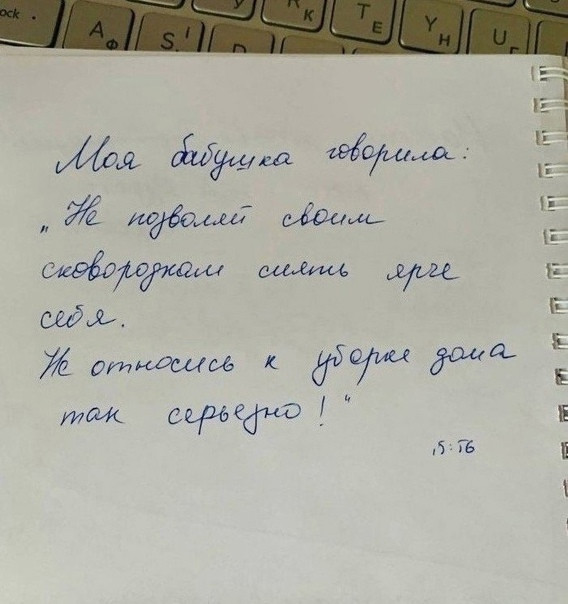 ock
А Ф S I K Т Е Y Н U Г
Моя бабушка говорила:
„Не позволяй своим
сковородкам сиять ярче
себя.
Не относись к уборке дома
так серьезно!“